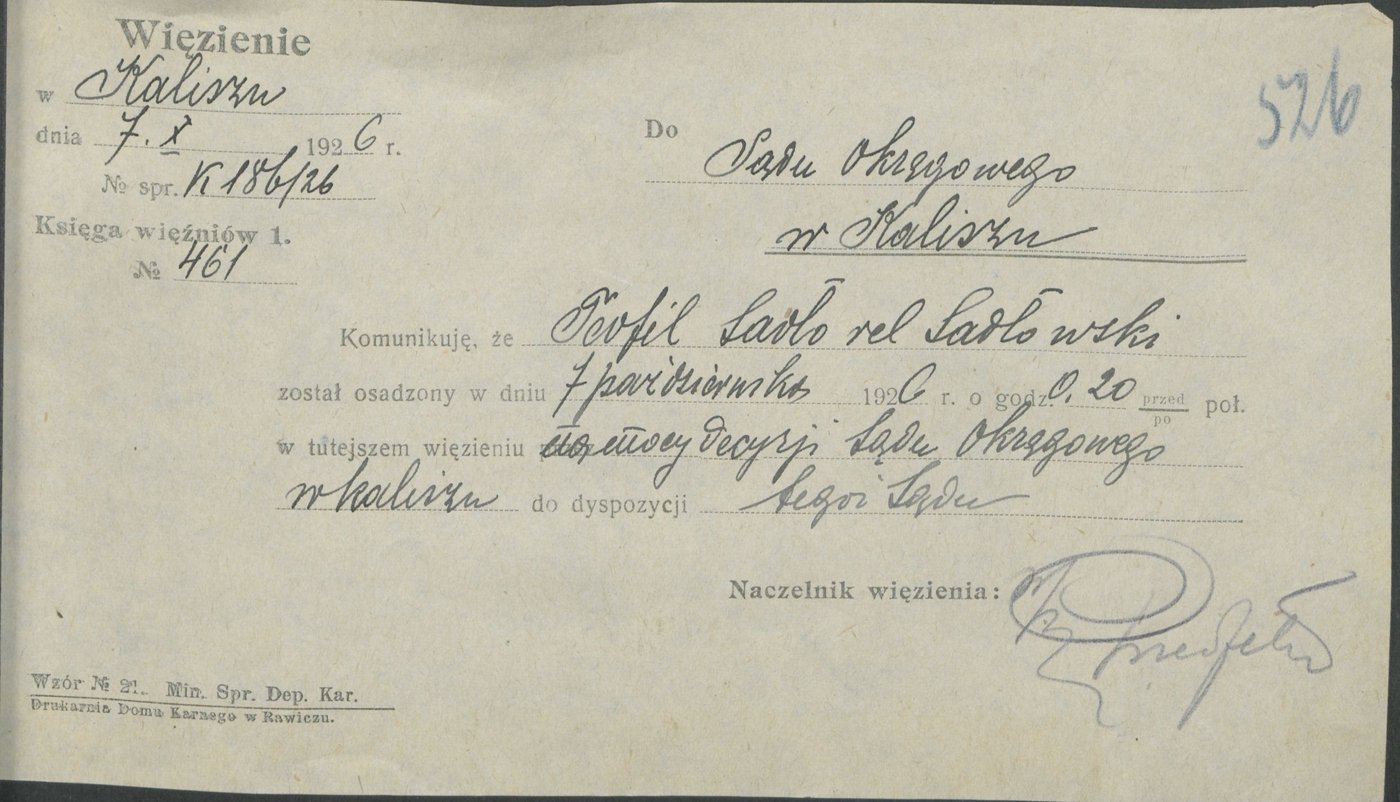 Więzienie
w Kaliszu
dnia 7. X 1926 r.
№ spr. K 186/26
Księga więźniów 1.
№ 461
526
Do Sądu Okręgowego
w Kaliszu
Komunikuję, że Teofil Sadło vel Sadłowski
został osadzony w dniu 7 października 1926 r. o godz. 0.20 przed po poł.
w tutejszem więzieniu na mocy decyzji Sądu Okręgowego
w Kaliszu do dyspozycji tegoż Sądu
Naczelnik więzienia:
Wzór № 21. Min. Spr. Dep. Kar.
Drukarnia Domu Karnego w Rawiczu.